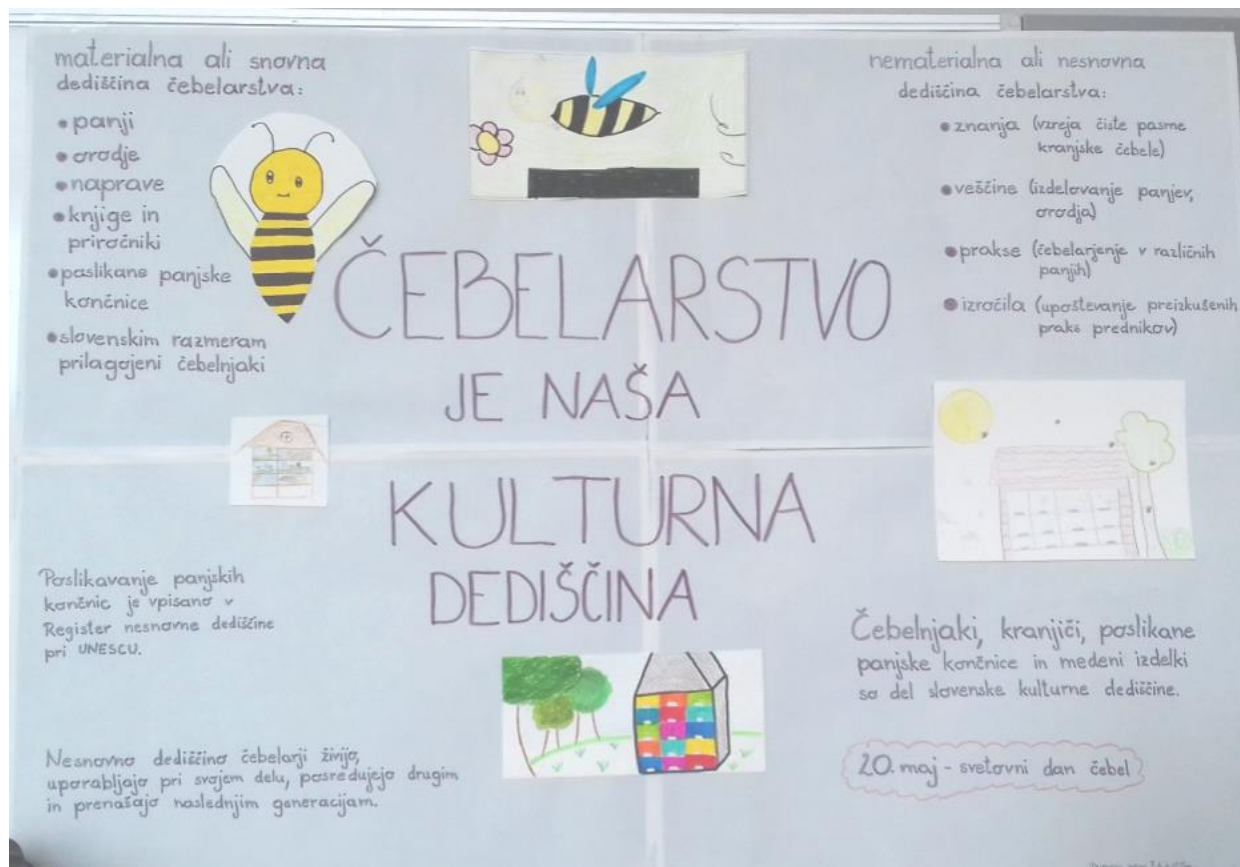 materialna ali snovna
dediščina čebelarstva:
• panji
• orodje
• naprave
• knjige in
priročniki
• poslikane panjske
končnice
• slovenskim razmeram
prilagojeni čebelnjaki
nematerialna ali nesnovna
dediščina čebelarstva:
• znanja (vzreja čiste pasme
kranjske čebele)
• veščine (izdelovanje panjev,
orodja)
• prakse (čebelarjenje v različnih
panjih)
• izročila (upoštevanje preizkušenih
praks prednikov)
ČEBELARSTVO
JE NAŠA
KULTURNA
DEDIŠČINA
Poslikavanje panjskih
končnic je vpisano v
Register nesnovne dediščine
pri UNESCU.
Nesnovno dediščino čebelarji živijo,
uporabljajo pri svojem delu, posredujejo drugim
in prenašajo naslednjim generacijam.
Čebelnjaki, kranjiči, poslikane
panjske končnice in medeni izdelki
so del slovenske kulturne dediščine.
20. maj - svetovni dan čebel